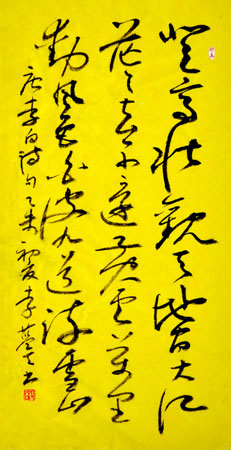 登高壮观天地间大江
茫々去不还黄云万里
动风色白波九道流雪山
唐李白诗句乙未初夏李书